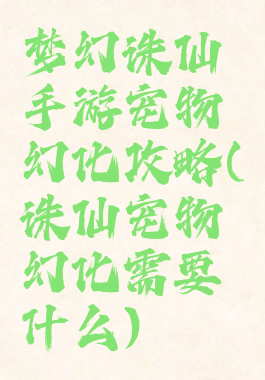 梦幻诛仙
手游宠物
幻化攻略(
诛仙宠物
幻化需要
什么)